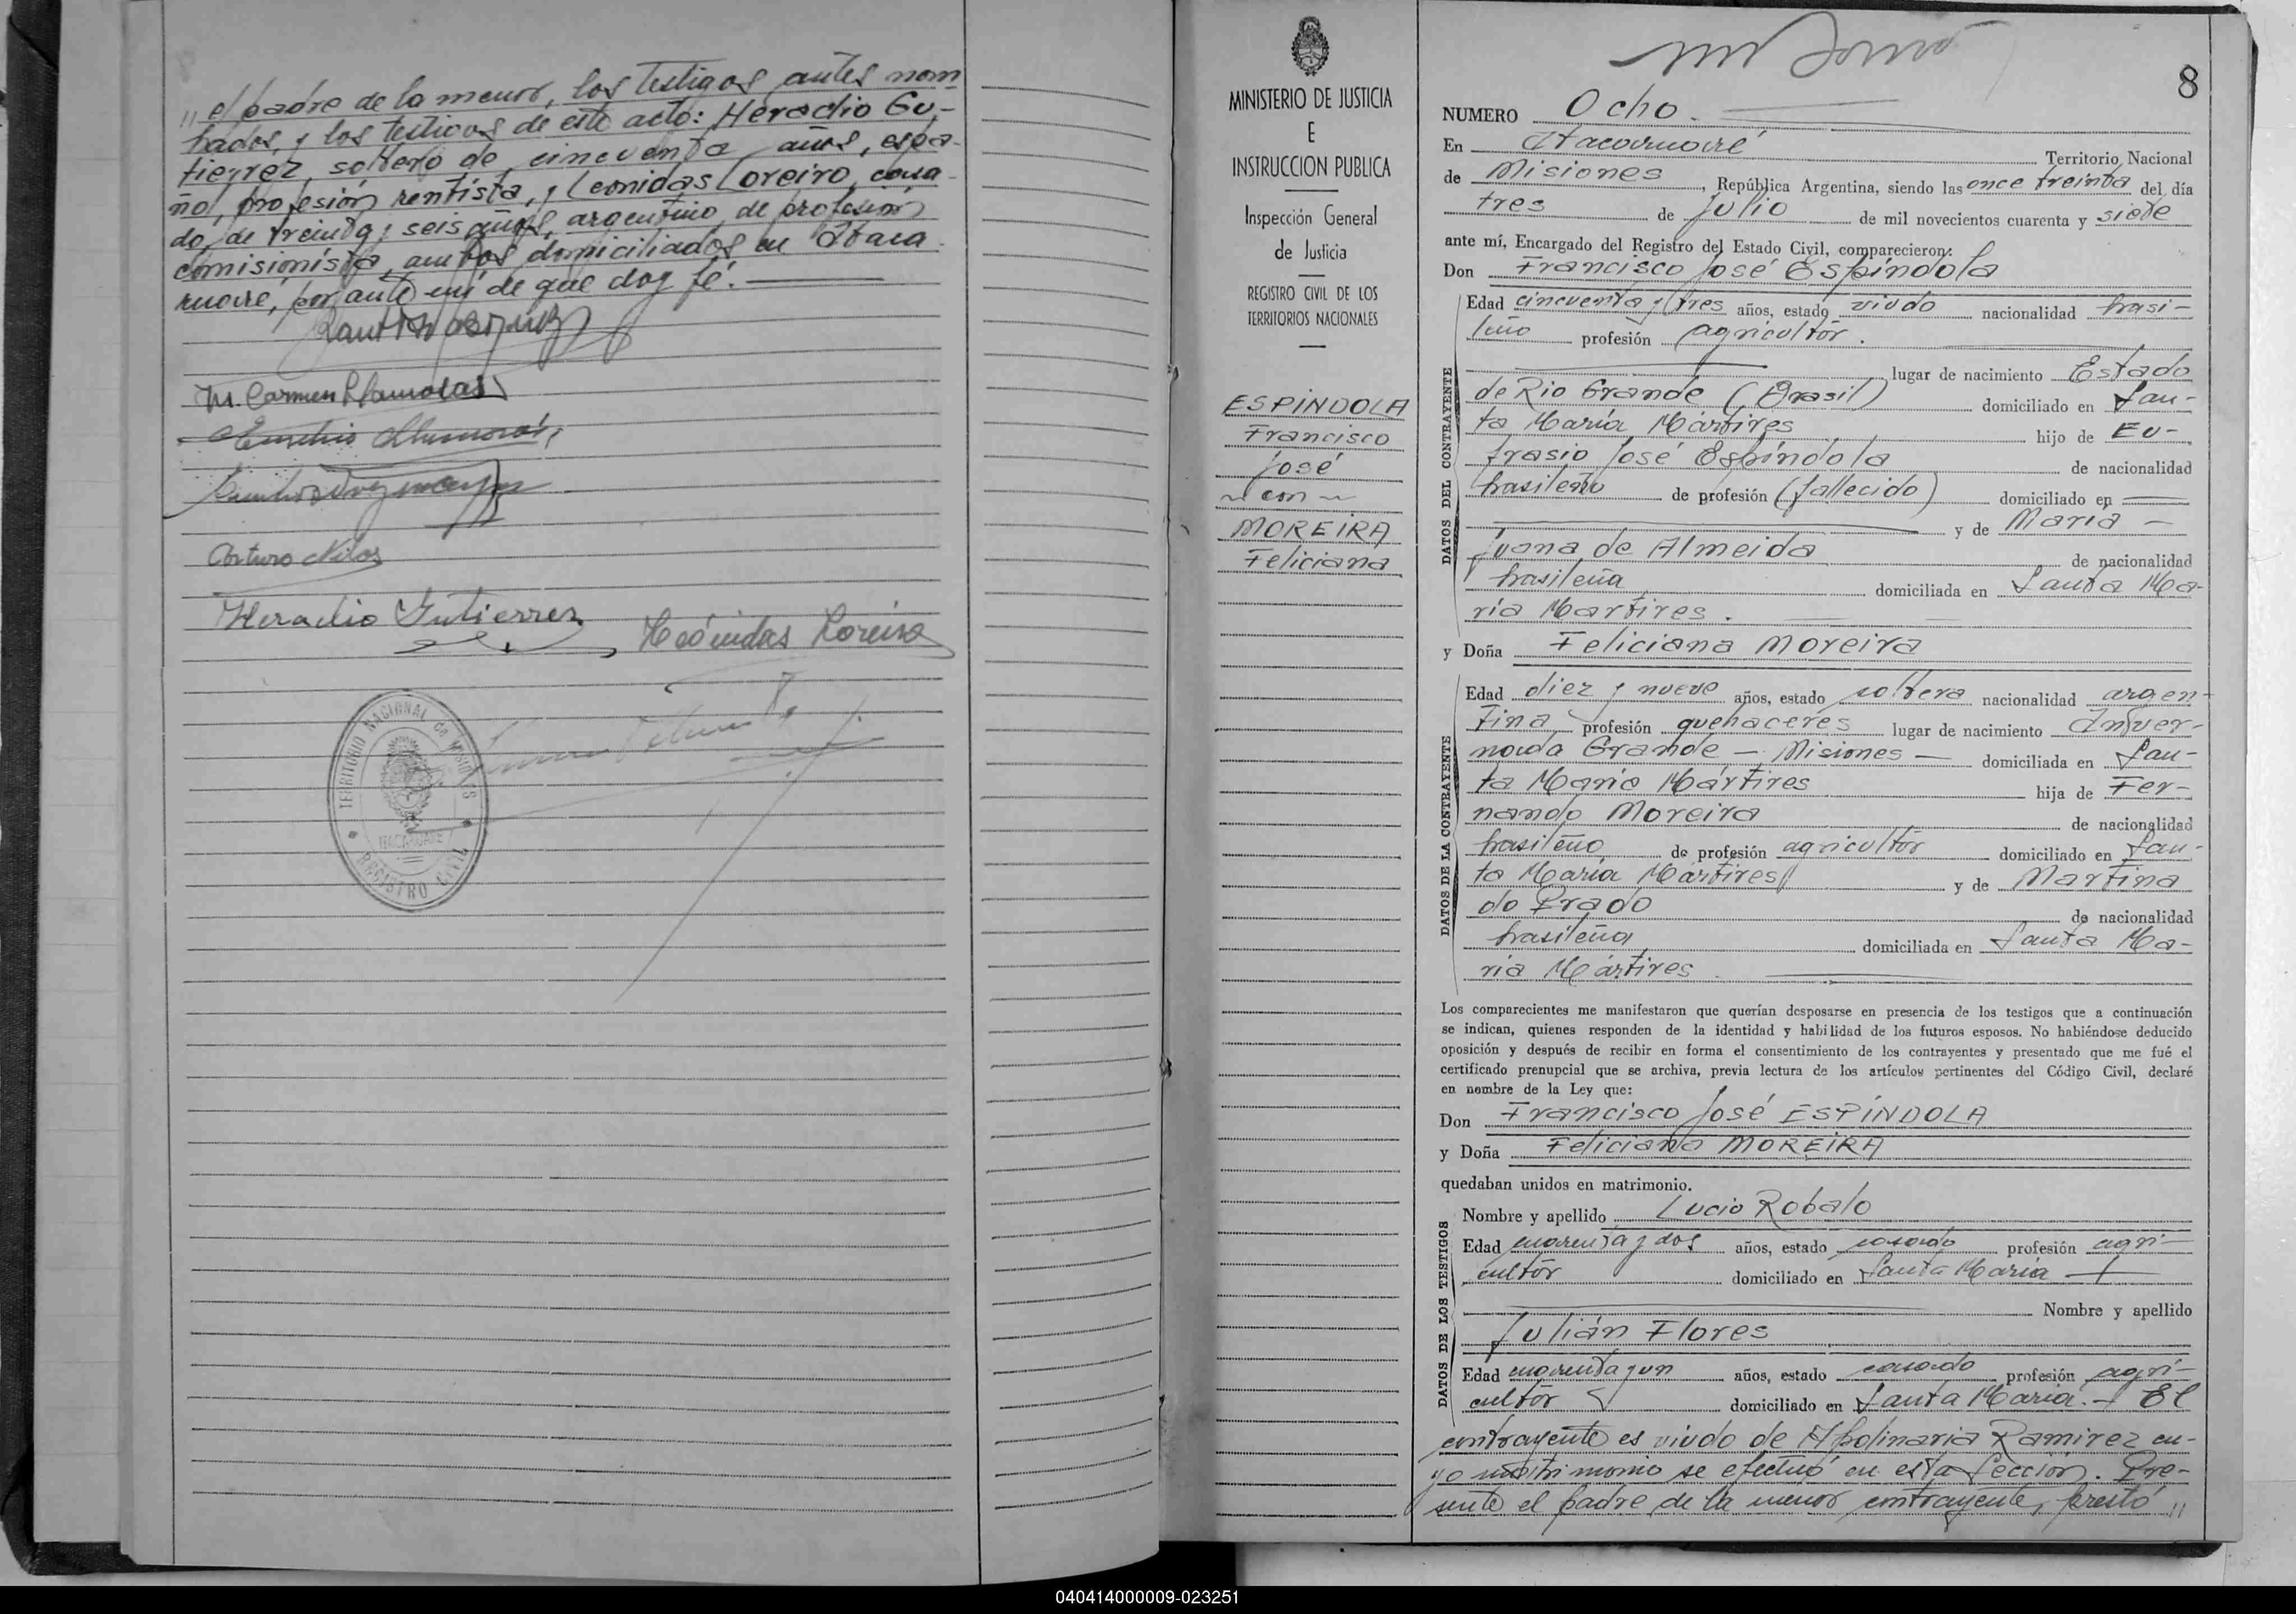 " el padre de la menor, los testigos antes nom-
bados, y los testigos de este acto: Heraclio Gu-
tierrez, soltero de cincuenta años, espa-
ñol, profesión rentista, y Leonidas Loreiro, casa-
do, de treinta y seis años, argentino, de profesión
comisionista, ambos domiciliados en Itaca-
ruaré, por ante mí de que doy fé.
M. Carmen Llamosas
Arturo Nilos
Heraclio Gutierrez
Leónidas Loreiro
TERRITORIO NACIONAL de MISIONES
ITACARUARE
REGISTRO CIVIL
MINISTERIO DE JUSTICIA
E
INSTRUCCION PUBLICA
Inspección General
de Justicia
REGISTRO CIVIL DE LOS
TERRITORIOS NACIONALES
ESPÍNDOLA
Francisco
José
~ con ~
MOREIRA
Feliciana
8
NUMERO Ocho.
En Itacaruaré Territorio Nacional
de Misiones, República Argentina, siendo las once treinta del día
tres de julio de mil novecientos cuarenta y siete
ante mí, Encargado del Registro del Estado Civil, comparecieron:
Don Francisco José Espíndola
DATOS DEL CONTRAYENTE
Edad cincuenta y tres años, estado viudo nacionalidad brasi-
leño profesión agricultor.
lugar de nacimiento Estado
de Rio Grande (Brasil) domiciliado en San-
ta María Mártires hijo de Eu-
frasio José Espíndola de nacionalidad
brasileño de profesión (fallecido) domiciliado en
y de María
Juana de Almeida de nacionalidad
brasileña domiciliada en Santa Ma-
ría Mártires.
y Doña Feliciana Moreira
DATOS DE LA CONTRAYENTE
Edad diez y nueve años, estado soltera nacionalidad argen-
tina profesión quehaceres lugar de nacimiento Inver-
nada Grande - Misiones - domiciliada en San-
ta María Mártires hija de Fer-
nando Moreira de nacionalidad
brasileño de profesión agricultor domiciliado en San-
ta María Mártires y de Martina
do Prado de nacionalidad
brasileña domiciliada en Santa Ma-
ría Mártires.
Los comparecientes me manifestaron que querían desposarse en presencia de los testigos que a continuación
se indican, quienes responden de la identidad y habilidad de los futuros esposos. No habiéndose deducido
oposición y después de recibir en forma el consentimiento de los contrayentes y presentado que me fué el
certificado prenupcial que se archiva, previa lectura de los artículos pertinentes del Código Civil, declaré
en nombre de la Ley que:
Don Francisco José ESPÍNDOLA
y Doña Feliciana MOREIRA
quedaban unidos en matrimonio.
DATOS DE LOS TESTIGOS
Nombre y apellido Lucio Robalo
Edad cuarenta y dos años, estado casado profesión agri-
cultor domiciliado en Santa María
Nombre y apellido
Julián Flores
Edad cuarenta y un años, estado casado profesión agri-
cultor domiciliado en Santa María. - El
contrayente es viudo de Apolinaria Ramirez cu-
yo matrimonio se efectuó en esta Sección. Pre-
sente el padre de la menor contrayente, prestó "
040414000009-023251